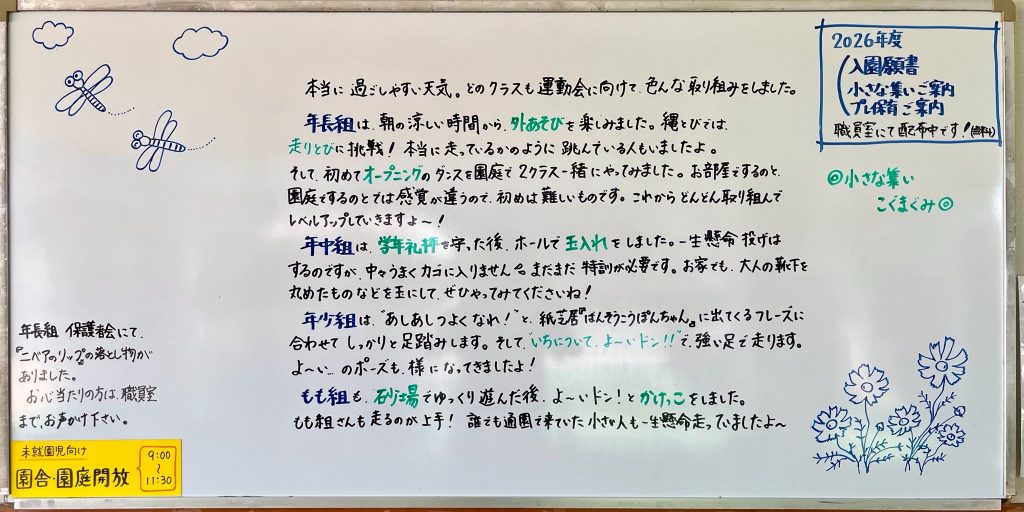 本当に過ごしやすい天気。どのクラスも運動会に向けて、色んな取り組みをしました。
年長組は、朝の涼しい時間から、外あそびを楽しみました。縄とびでは、
走りとびに挑戦！本当に走っているかのように跳んでいる人もいましたよ。
そして、初めてオープニングのダンスを園庭で2クラス一緒にやってみました。お部屋でするのと、
園庭でするのとでは感覚が違うので、初めは難しいものです。これからどんどん取り組んで
レベルアップしていきますよ〜！
年中組は、学年礼拝を守った後、ホールで玉入れをしました。一生懸命投げは
するのですが、中々うまくカゴに入りません。まだまだ特訓が必要です。お家でも、大人の靴下を
丸めたものなどを玉にして、ぜひやってみてくださいね！
年少組は、"あしあしつよくなれ！"と、紙芝居『ばんそうこうぽんちゃん』に出てくるフレーズに
合わせてしっかりと足踏みします。そして、"いちについて、よ〜いドン!!"で、強い足で走ります。
よ〜い…のポーズも、様になってきましたよ！
もも組も、砂場でゆっくり遊んだ後、よ〜いドン！とかけっこをしました。
もも組さんも走るのが上手！誰でも通園で来ていた小さな人も一生懸命走っていましたよ〜
2026年度
入園願書
小さな集いご案内
プレ保育ご案内
職員室にて配布中です！(無料)
◎小さな集い
こぐまぐみ◎
年長組 保護者会にて、
『ニベアのリップ』の落とし物が
ありました。
お心当たりの方は、職員室
まで、お声かけ下さい。
未就園児向け
園舎・園庭開放
9:00
〜
11:30